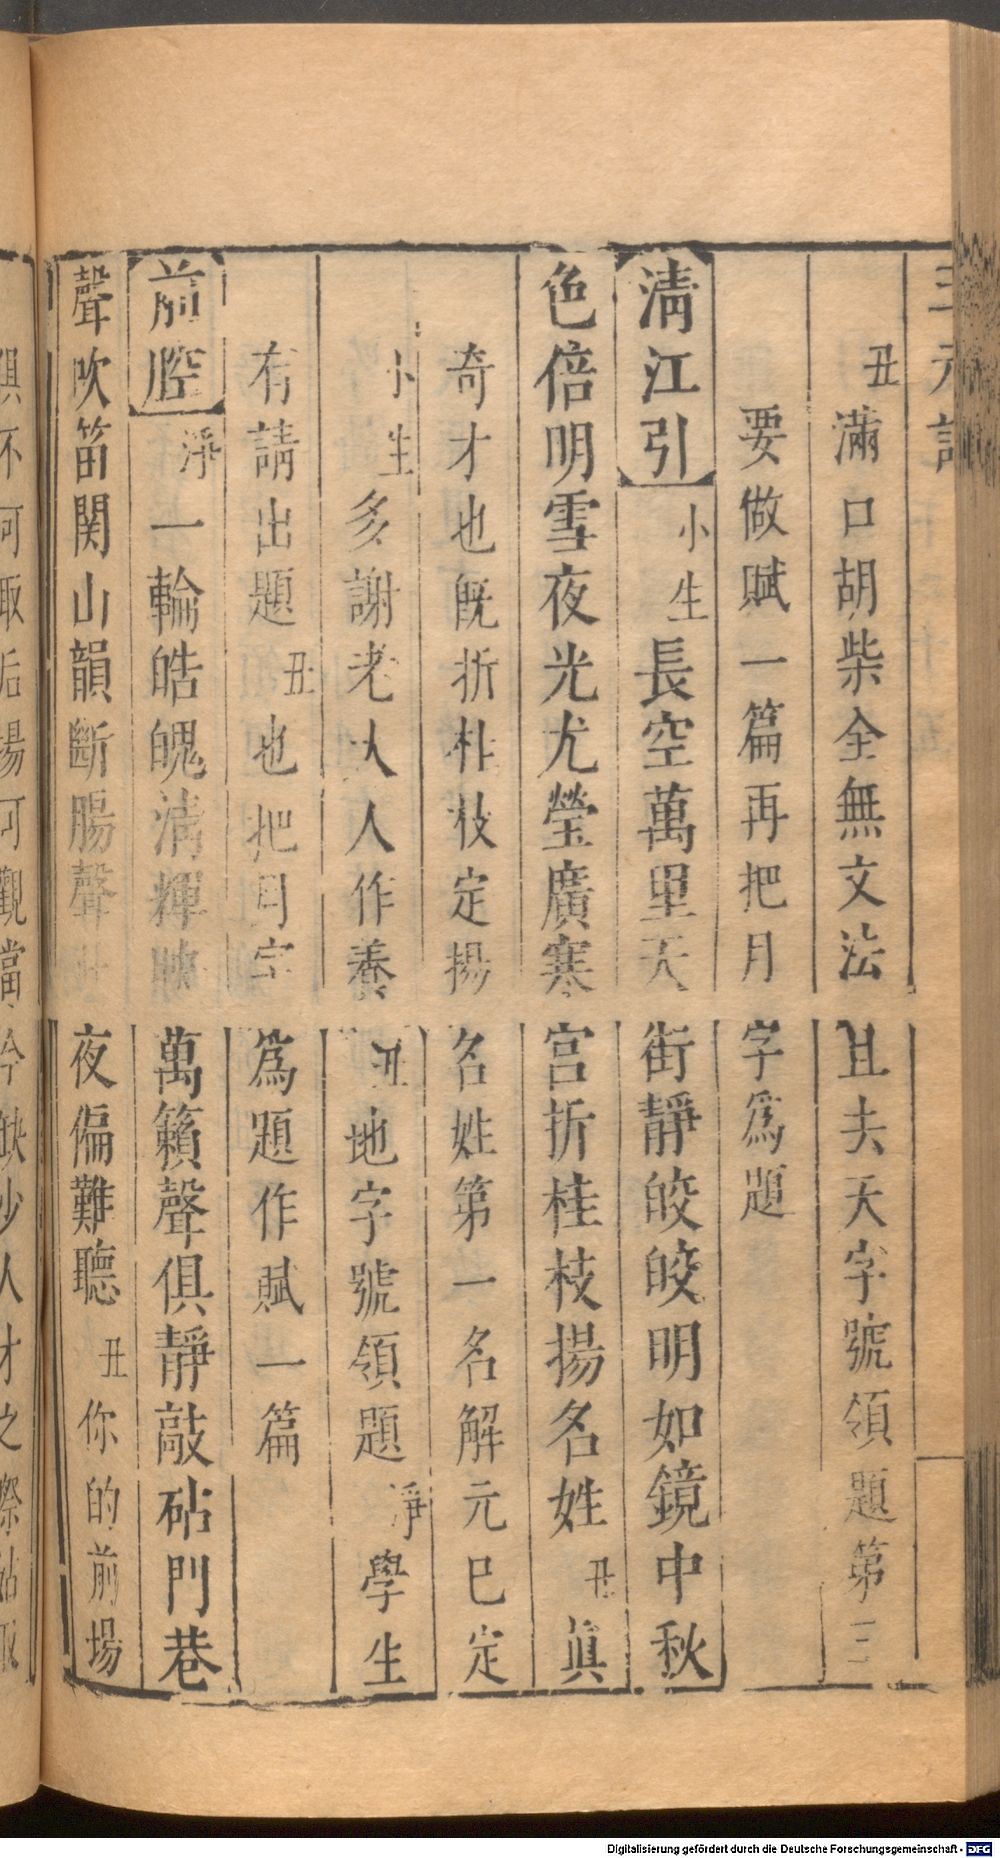 三元記
丑滿口胡柴全無文法且夫天字號領題第三
要做賦一篇再把月字爲題
清江引小生長空萬里天街靜皎皎明如鏡中秋
色倍明雪夜光尤瑩廣寒宮折桂枝揚名姓丑眞
奇才也旣折朴枝定揚名姓第一名解元巳定
小生多謝老大人作養丑地字號領題淨學生
有請出題丑也把月字爲題作賦一篇
前腔淨一輪皓魄清輝映萬籟聲俱靜敲砧門巷
聲吹笛関山韻斷腸聲夜偏難聽丑你的前塲
俱不可取后揚可觀當今缺少人才之際姑取
Digitalisierung gefördert durch die Deutsche Forschungsgemeinschaft - DFG